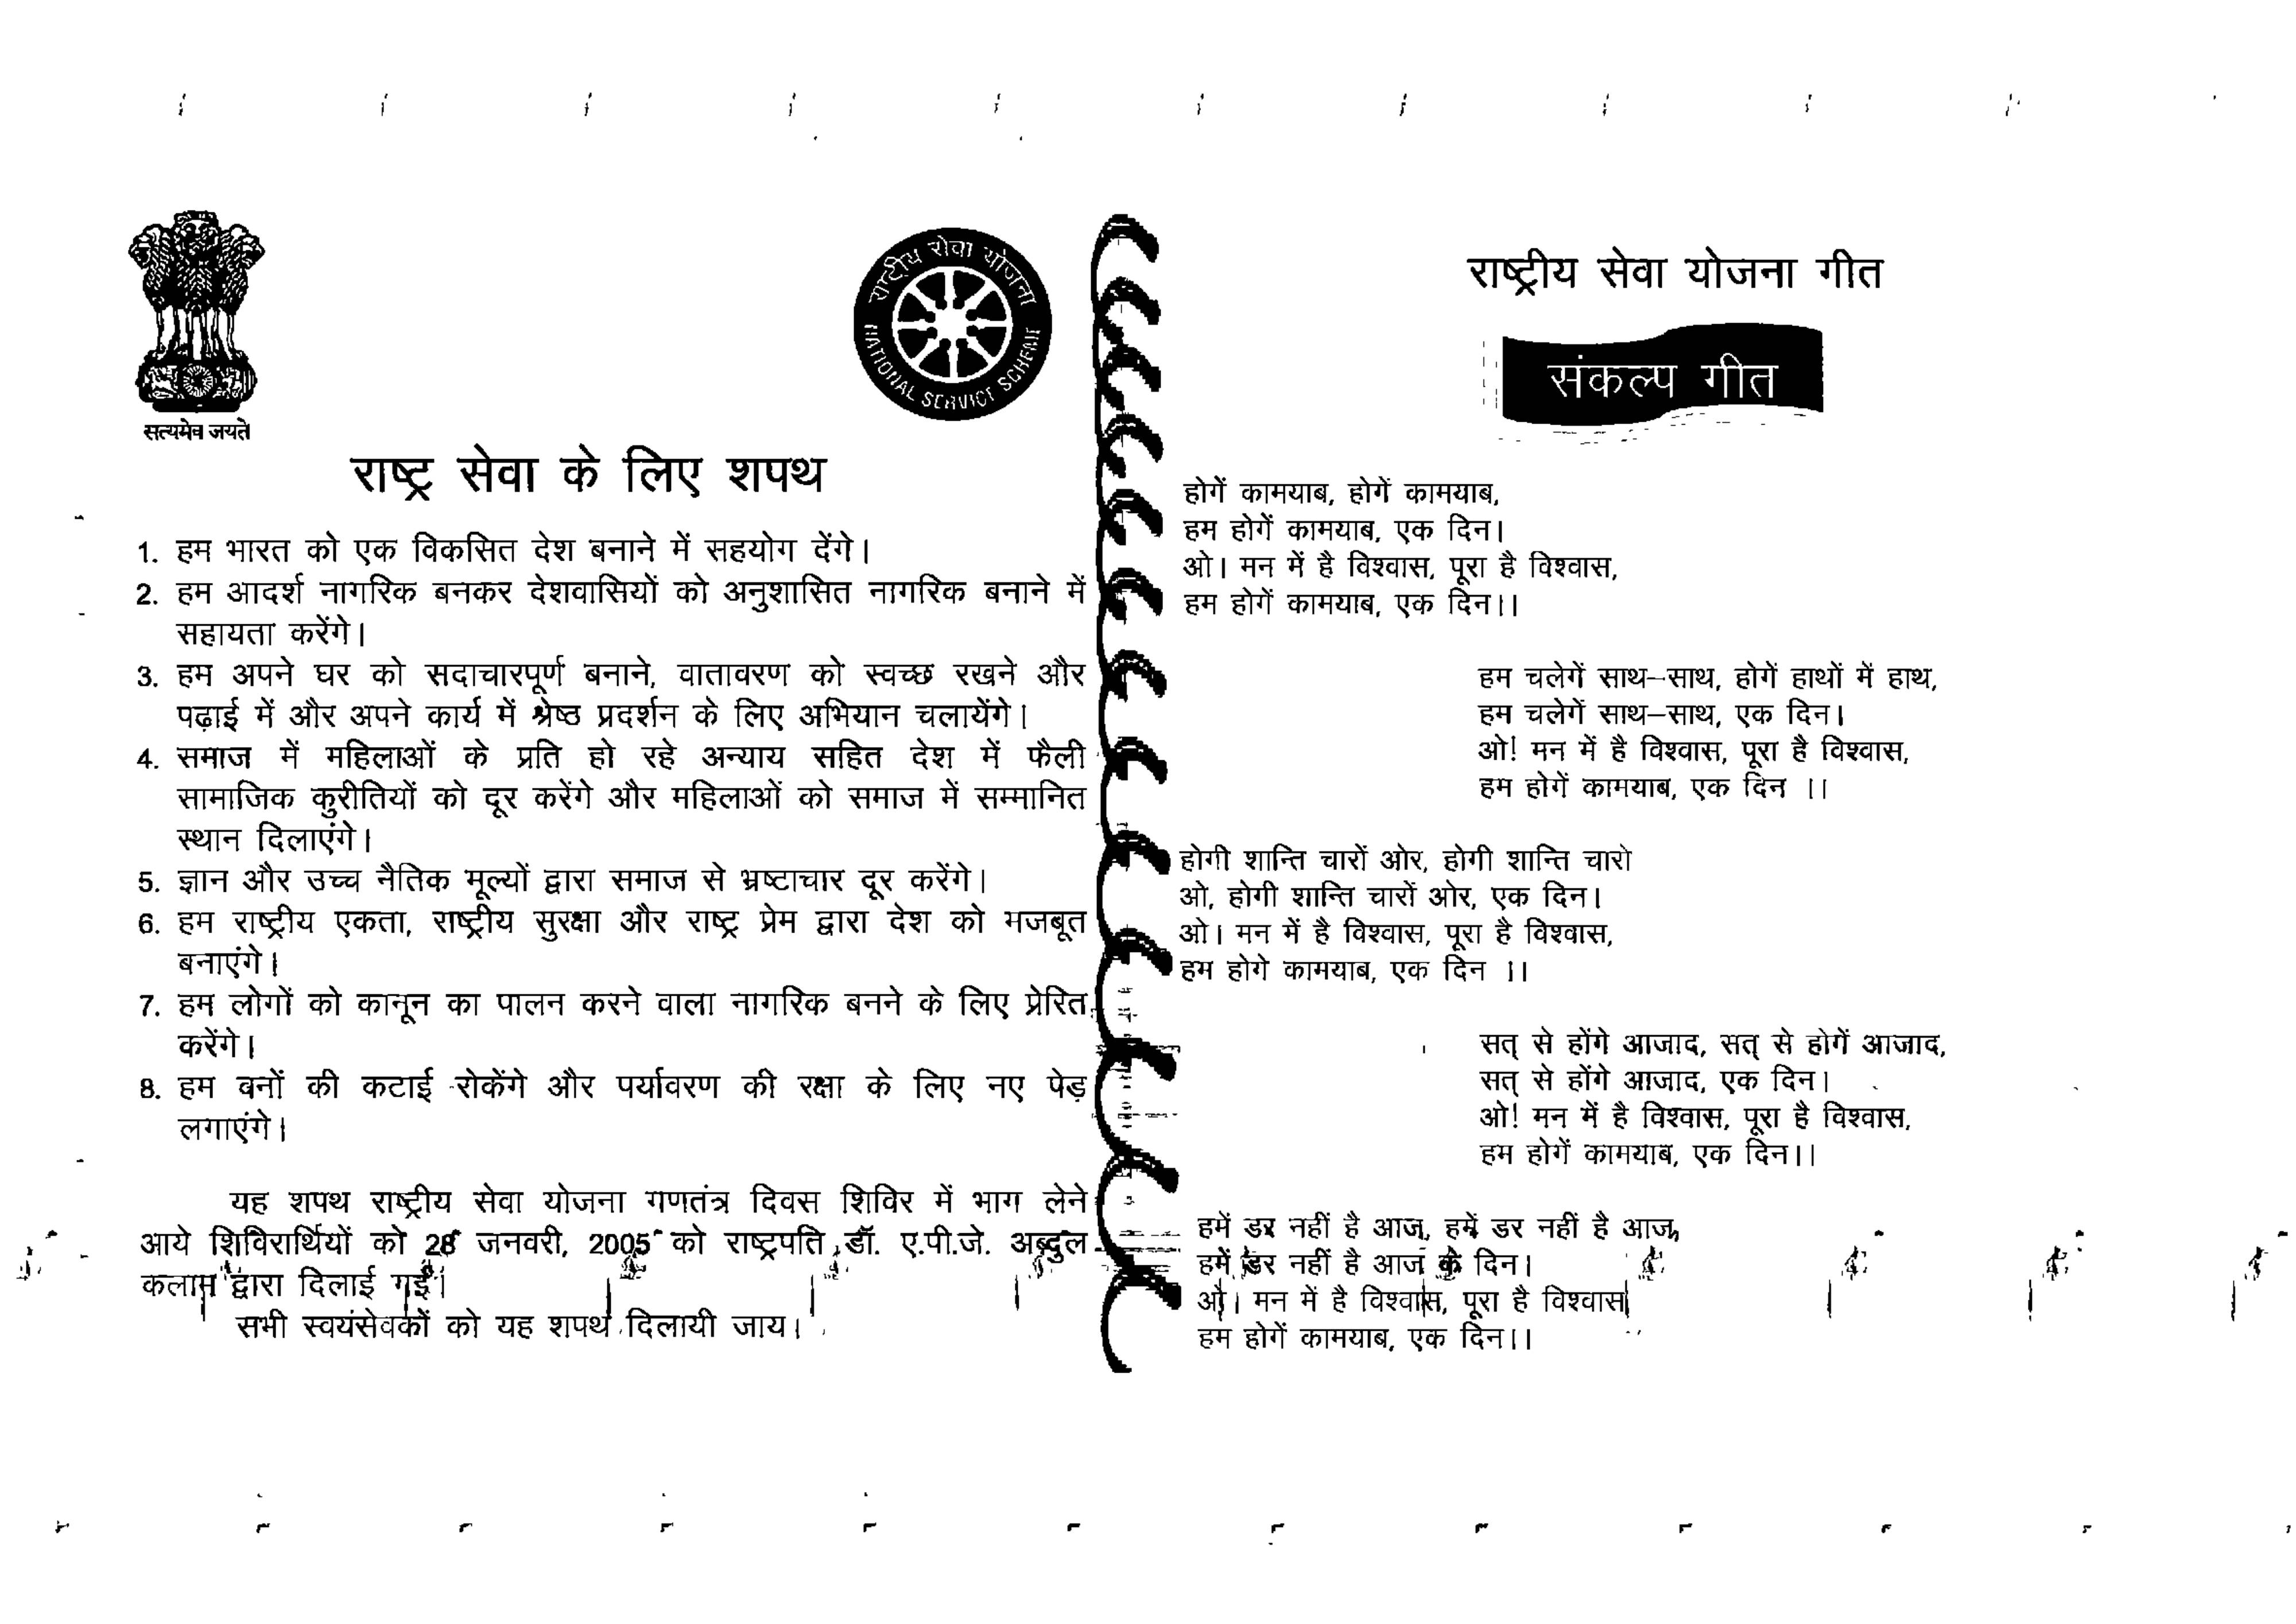 सत्यमेव जयते
राष्ट्रीय सेवा योजना
NATIONAL SERVICE SCHEME
राष्ट्र सेवा के लिए शपथ
1. हम भारत को एक विकसित देश बनाने में सहयोग देंगे।
2. हम आदर्श नागरिक बनकर देशवासियों को अनुशासित नागरिक बनाने में
सहायता करेंगे।
3. हम अपने घर को सदाचारपूर्ण बनाने, वातावरण को स्वच्छ रखने और
पढ़ाई में और अपने कार्य में श्रेष्ठ प्रदर्शन के लिए अभियान चलायेंगे।
4. समाज में महिलाओं के प्रति हो रहे अन्याय सहित देश में फैली
सामाजिक कुरीतियों को दूर करेंगे और महिलाओं को समाज में सम्मानित
स्थान दिलाएंगे।
5. ज्ञान और उच्च नैतिक मूल्यों द्वारा समाज से भ्रष्टाचार दूर करेंगे।
6. हम राष्ट्रीय एकता, राष्ट्रीय सुरक्षा और राष्ट्र प्रेम द्वारा देश को मजबूत
बनाएंगे।
7. हम लोगों को कानून का पालन करने वाला नागरिक बनने के लिए प्रेरित
करेंगे।
8. हम बनों की कटाई रोकेंगे और पर्यावरण की रक्षा के लिए नए पेड़
लगाएंगे।
यह शपथ राष्ट्रीय सेवा योजना गणतंत्र दिवस शिविर में भाग लेने
आये शिविरार्थियों को 28 जनवरी, 2005 को राष्ट्रपति डॉ. ए.पी.जे. अब्दुल
कलाम द्वारा दिलाई गई।
सभी स्वयंसेवकों को यह शपथ दिलायी जाय।
राष्ट्रीय सेवा योजना गीत
संकल्प गीत
होगें कामयाब, होगें कामयाब,
हम होगें कामयाब, एक दिन।
ओ। मन में है विश्वास, पूरा है विश्वास,
हम होगें कामयाब, एक दिन।।
हम चलेगें साथ–साथ, होगें हाथों में हाथ,
हम चलेगें साथ–साथ, एक दिन।
ओ! मन में है विश्वास, पूरा है विश्वास,
हम होगें कामयाब, एक दिन ।।
होगी शान्ति चारों ओर, होगी शान्ति चारो
ओ, होगी शान्ति चारों ओर, एक दिन।
ओ। मन में है विश्वास, पूरा है विश्वास,
हम होगे कामयाब, एक दिन ।।
सत् से होंगे आजाद, सत् से होगें आजाद,
सत् से होंगे आजाद, एक दिन।
ओ! मन में है विश्वास, पूरा है विश्वास,
हम होगें कामयाब, एक दिन।।
हमें डर नहीं है आज, हमें डर नहीं है आज,
हमें डर नहीं है आज के दिन।
ओ। मन में है विश्वास, पूरा है विश्वास
हम होगें कामयाब, एक दिन।।